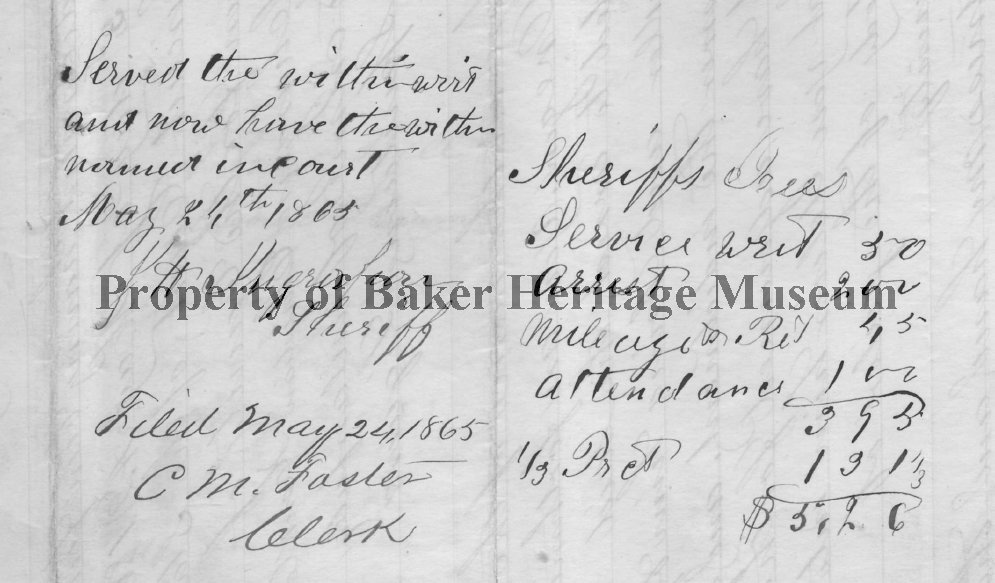 Served the within writ
and now have the within
named in Court
May 24th 1865
Sheriff
Filed May 24, 1865
C M. Foster
Clerk
Sheriffs Fees
Service writ 50
Arrest 2 00
Mileage & Ret 45
Attendance 1 00
3 95
1/3 Pr ct 1 31 1/3
$ 5,26
Property of Baker Heritage Museum